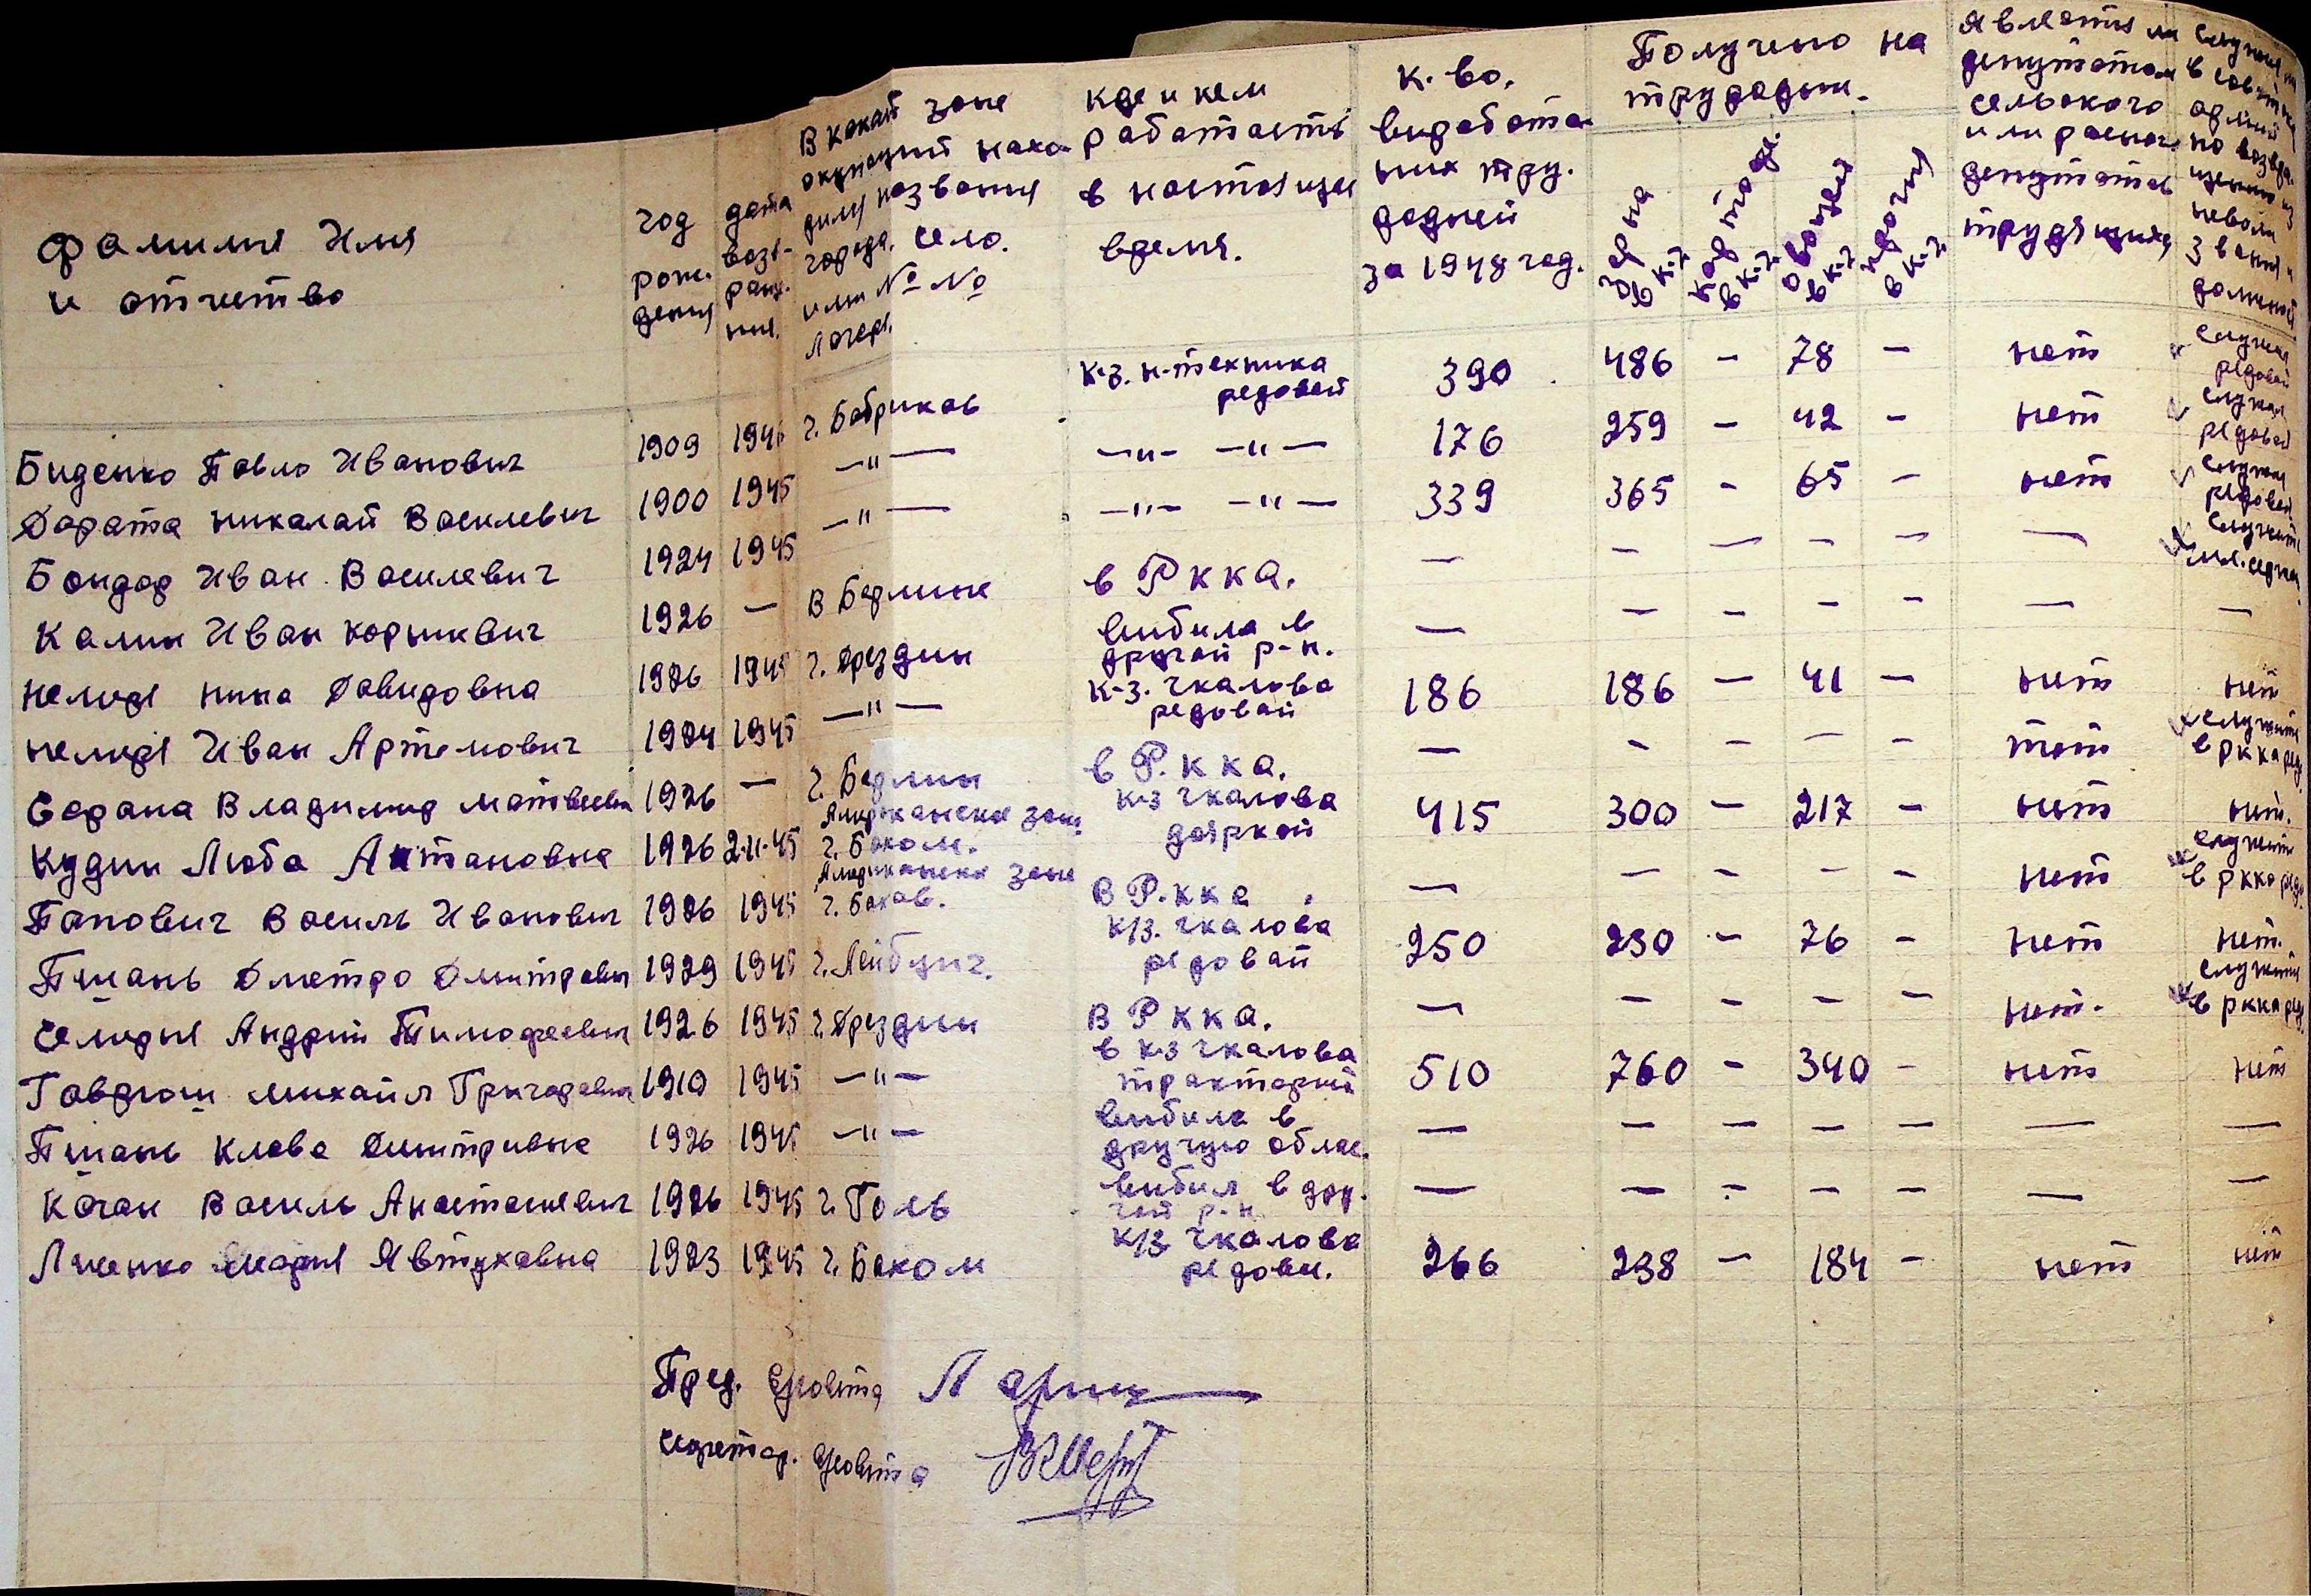 фамилия Имя и отчество
год рождения
дата возвращения
В какай зоне
окупаций нахо-
дился названия
города, село.
или №№
лагеря.
кде и кем
работаеть
в настоящее
время.
к-во.
виработа-
них тру.
додней
за 1948 год.
Получено на
трудодни.
зерна в к-г
картофе. в к-г
овощей в к-г
прочих в к-г
является ли
депутатом
сельского
или район.
депутатов
трудящихся
Служил ли
в совет
армии
по возвра-
щении из
неволи
звание и
должность
Биденко Павло Иванович 1909 1945 г. Бабриков к-з. н-техника редовей 390 486 - 78 - нет служил редовей
Дарата никалай Василевич 1900 1945 -"- -"- -"- 176 259 - 42 - нет служил редовей
Бондар Иван Василевич 1924 1945 -"- -"- -"- 339 365 - 65 - нет служил редовей
Калин Иван корниквич 1926 — В Берлине в РККА. — - - - - — служить мл. сержан
нелидя нина Давидовна 1926 1945 г. Дрездин вибила в другой р-н. — - - - - — —
нелидя Иван Артемович 1924 1945 -"- к-з. чкалова редовай 186 186 - 41 - нет нет
Сарана Владимир матвеевич 1926 — г. Берлин в Р.ККА. — - - - - нет служить в РККА ред.
кудин Люба Антановна 1926 2-11-45 Американска зона г. Бохом. к-з чкалова дояркой 415 300 - 217 - нет нет.
Папович Василь Иванович 1926 1945 Американска зона г. Бохов. В Р.кка — - - - - нет служить в РККА ред.
Пшань Дметро Дмитревич 1929 1945 г. Лейбциг. к/з. чкалова редовай 250 230 - 76 - нет нет.
Селидя Андрий Тимофеевич 1926 1945 г. Дрездин В РККА. — - - - - нет. служить в РККА ред.
Гавдюш михайл Григоревич 1910 1945 -"- в к-з чкалова тракторий 510 760 - 340 - нет нет
Пшань Клава Дмитривна 1926 1945 -"- вибила в другую облас. — - - - - — —
Коган Василь Анастасиевич 1926 1945 г. Голь вибил в дру. гой р-н — - - - - — —
Лисенко мария Явтухавна 1923 1945 г. Бохом к/з чкалова редови. 266 238 - 184 - нет нет
Пред. с/совета
Секретар. с/совета